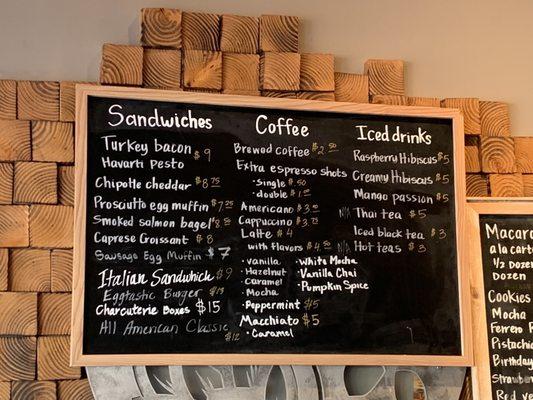 Sandwiches
Turkey bacon
Havarti pesto $9
Chipotle cheddar $8.75
Prosciutto egg muffin $7.25
Smoked salmon bagel
Caprese Croissant $8
Sausage Egg Muffin $7
Italian Sandwich $9
Eggtastic Burger $13
Charcuterie Boxes $15
All American Classic $12
Coffee
Brewed coffee $2.50
Extra espresso shots
• single $.50
• double $1.00
Americano
Cappuccino
Latte $4
with flavors
• vanilla
• Hazelnut
• Caramel
• Mocha
• White Mocha
• Vanilla Chai
• Pumpkin Spice
• Peppermint
Macchiato $5
• Caramel
Iced drinks
Raspberry Hibiscus $5
Creamy Hibiscus $5
Mango passion $5
Thai tea $5
Iced black tea $3
Hot teas $3
Macaro
a la cart
½ Dozen
Dozen
Cookies
Mocha
Ferrero R
Pistach
Birthday
Strawber
Red ve